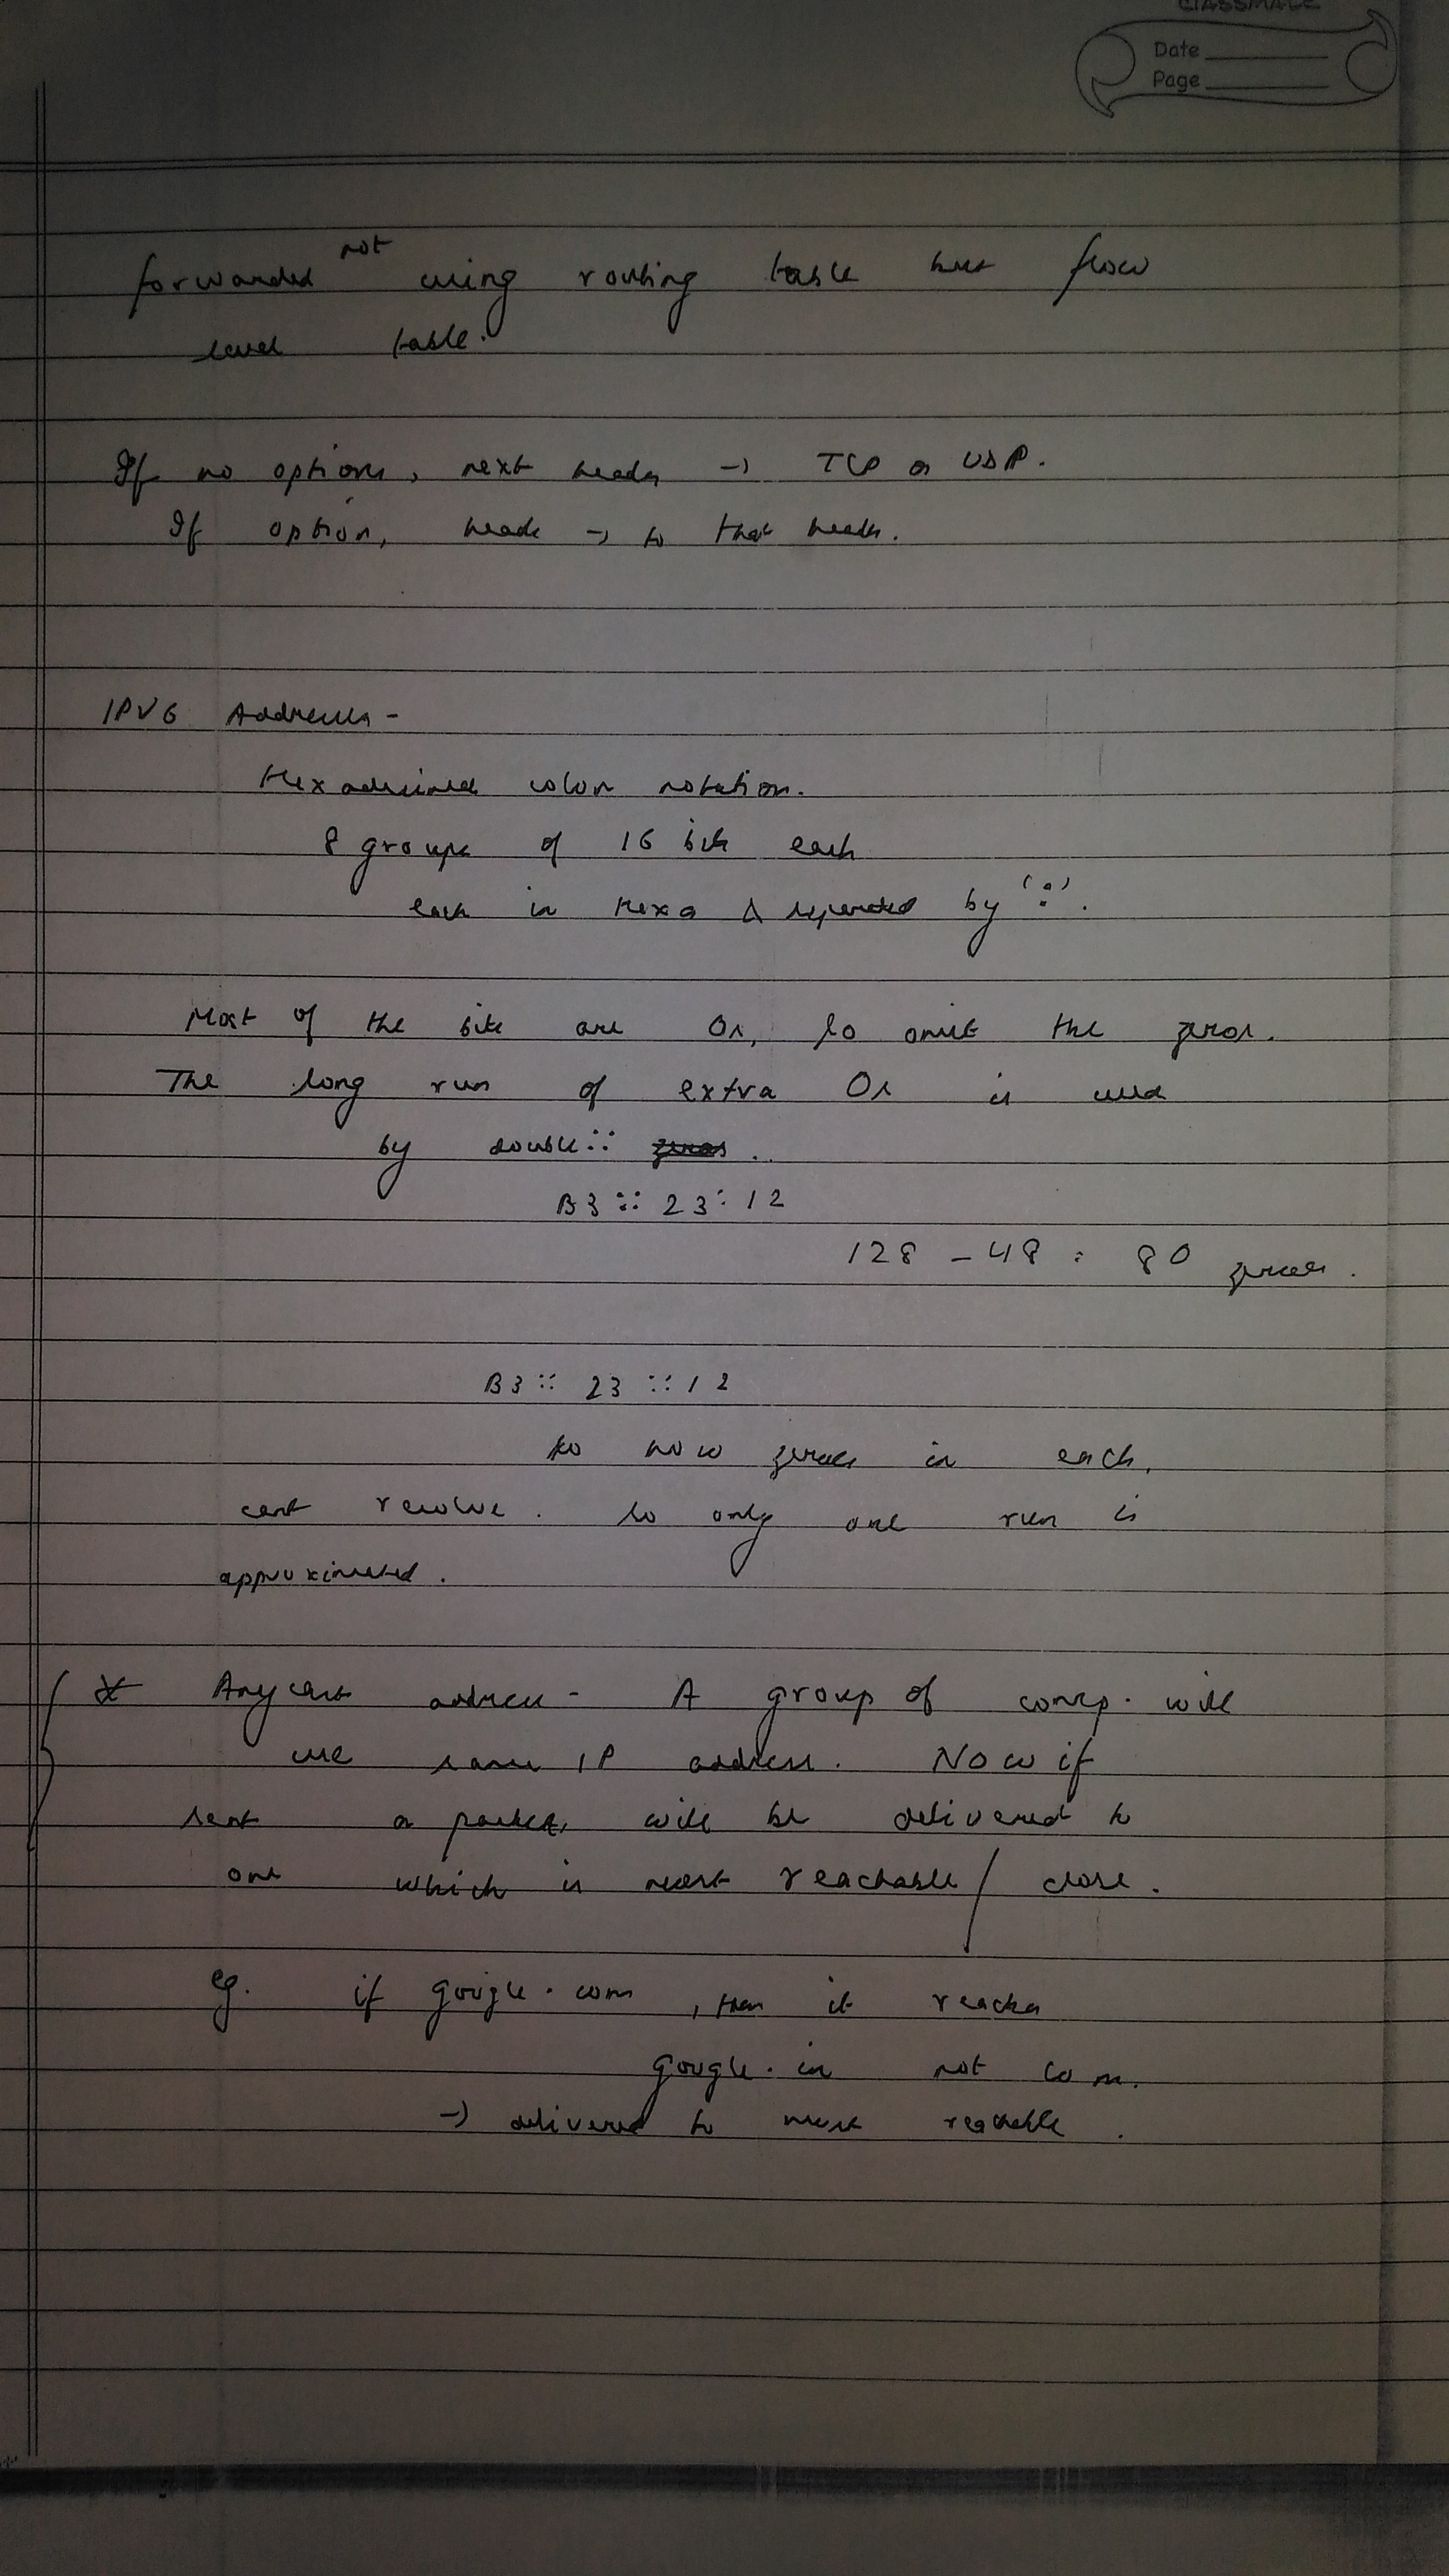 classmate
Date
Page
forwarded not using routing table but flow
level table.
If no options, next header → TCP or UDP.
If option, header → to that header.
IPV6 Addresses -
Hexadecimal colon notation.
8 groups of 16 bits each
each in Hexa & seperated by ':'.
Most of the bits are 0s, so omit the zeros.
The long run of extra 0s is used
by double ::
B3 :: 23 : 12
128 - 48 = 80 zeroes.
B3 :: 23 :: 12
so how zeroes in each,
cant resolve. so only one run is
approximated.
* Anycast address - A group of comp. will
use same IP address. Now if
sent a packet, will be delivered to
one which is most reachable / close.
eg. if google.com, then it reaches
google.in not com.
→ delivered to most reachable.